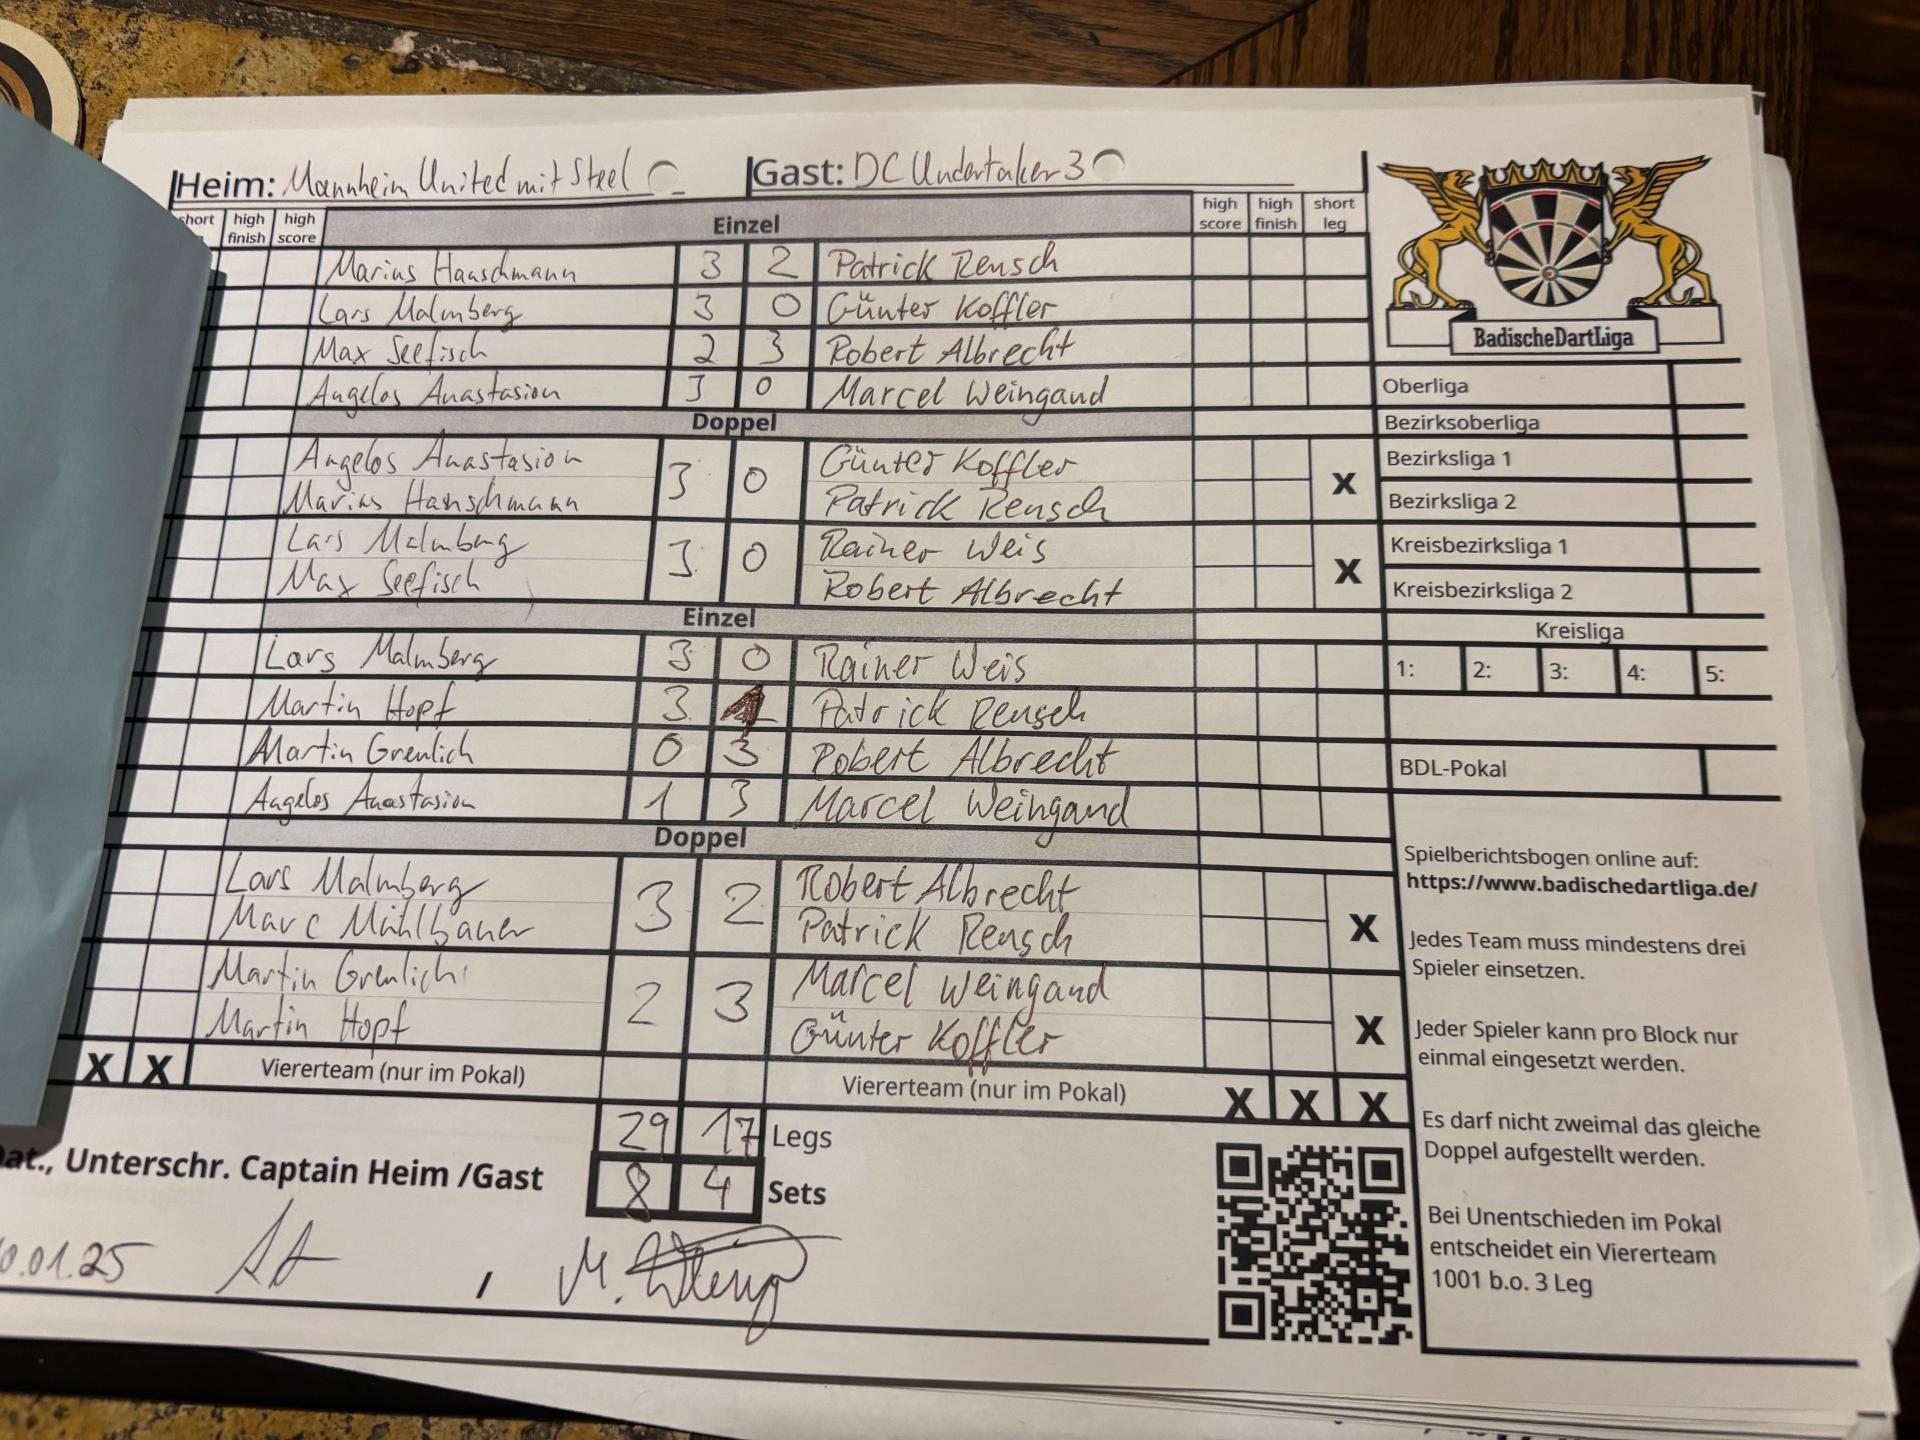 Heim: Mannheim United mit Steel Gast: DC Undertaker 3
short high finish high score Einzel high score high finish short leg
Marius Hanschmann 3 2 Patrick Rensch
Lars Malmberg 3 0 Günter Koffler
Max Seefisch 2 3 Robert Albrecht
Angelos Anastasion 3 0 Marcel Weingand
Doppel
Angelos Anastasion 3 0 Günter Koffler
Marius Hanschmann Patrick Rensch X
Lars Malmberg 3 0 Rainer Weis
Max Seefisch Robert Albrecht X
Einzel
Lars Malmberg 3 0 Rainer Weis
Martin Hopf 3 1 Patrick Rensch
Martin Grenlich 0 3 Robert Albrecht
Angelos Anastasion 1 3 Marcel Weingand
Doppel
Lars Malmberg 3 2 Robert Albrecht
Marc Mühlbauer Patrick Rensch X
Martin Grenlich 2 3 Marcel Weingand
Martin Hopf Günter Koffler X
X X Viererteam (nur im Pokal) Viererteam (nur im Pokal) X X X
29 17 Legs
8 4 Sets
Unterschr. Captain Heim /Gast
0.01.25 /
BadischeDartLiga
Oberliga
Bezirksoberliga
Bezirksliga 1
Bezirksliga 2
Kreisbezirksliga 1
Kreisbezirksliga 2
Kreisliga
1: 2: 3: 4: 5:
BDL-Pokal
Spielberichtsbogen online auf:
https://www.badischedartliga.de/
Jedes Team muss mindestens drei
Spieler einsetzen.
Jeder Spieler kann pro Block nur
einmal eingesetzt werden.
Es darf nicht zweimal das gleiche
Doppel aufgestellt werden.
Bei Unentschieden im Pokal
entscheidet ein Viererteam
1001 b.o. 3 Leg